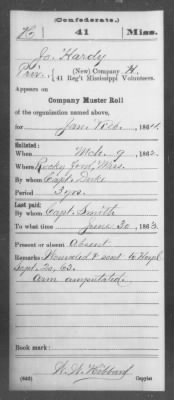 (Confederate.)
H | 41 | Miss.
Jo. Hardy
Priv., (New) Company H,
41 Reg't Mississippi Volunteers.
Appears on
Company Muster Roll
of the organization named above,
for Jan & Feb., 1864.
Enlisted:
When Mch. 9, 1862.
Where Rocky Ford, Miss.
By whom Capt. Duke
Period 3 yrs.
Last paid:
By whom Capt. Smith
To what time June 30, 1863.
Present or absent Absent
Remarks: Wounded & sent to Hospl
Sept. 20, 63.
Arm amputated.
Book mark:
(642) Copyist.